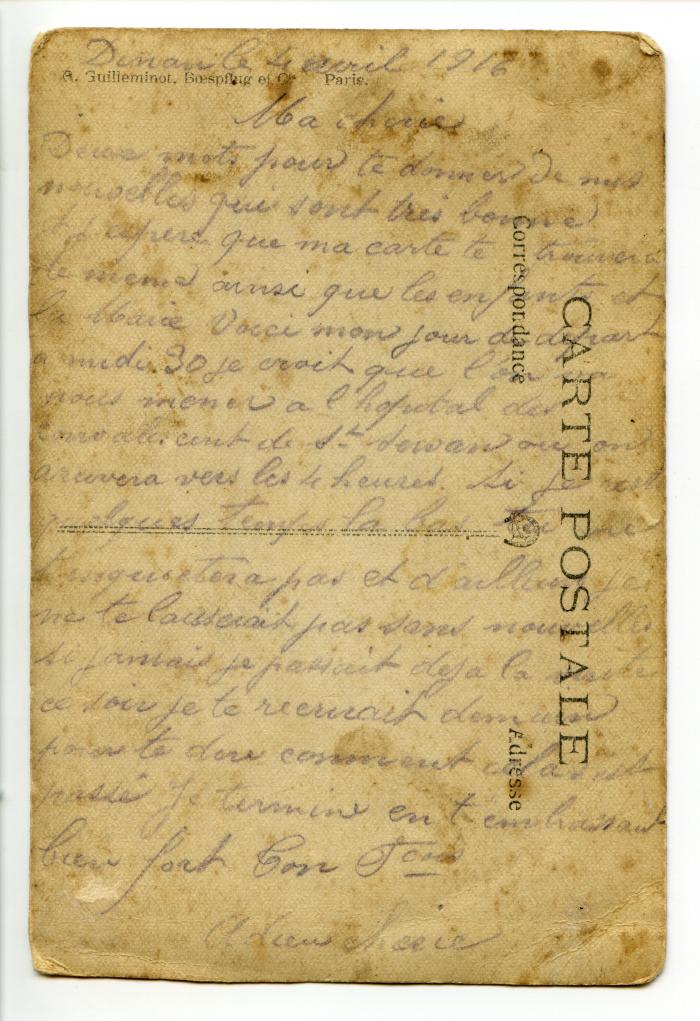 Dinan le 4 avril 1916
A. Guilleminot, Bœspflug et Cie Paris.
Ma cherie
Deux mots pour te donner de mes
nouvelles qui sont très bonne
et j espere que ma carte te trouvera
de meme ainsi que les enfants et
la Marie Voici mon jour de depart
a midi 30 je croit que l'on va
nous mener a l hopital des
convalescent de St Servan ou on
arrivera vers les 4 heures. Si je rest
quelques temps la bas tu ne
t inquietera pas et d'ailleurs je
ne te laisserait pas sans nouvelles
si jamais je passait deja la visite
ce soir je te recrirait demain
pour te dire comment cela s'est
passé Je termine en t embrassant
bien fort Ton
Adieu cherie
Correspondance
CARTE POSTALE
Adresse